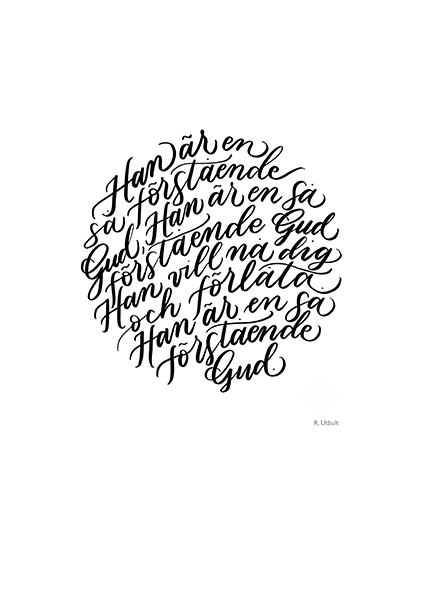 Han är en
så förstående
Gud, Han är en så
förstående Gud
Han vill nå dig
och förlåta.
Han är en så
förstående
Gud.
R. Utbult